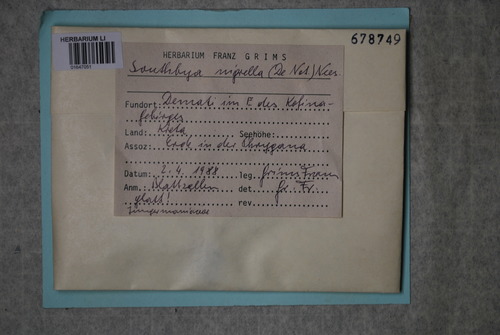 HERBARIUM LI
678749
HERBARIUM FRANZ GRIMS
Southbya nigrella (De Not) Nees
Fundort: Demati im E des Kofina-
gebirges
Land: Kreta Seehöhe:
Assoz: Erde in der Phrygana
Datum: 2.4.1988 leg. Grims Franz
Anm. Blattzellen det Gr. Fr.
glatt! rev.
Jungermanniaceae